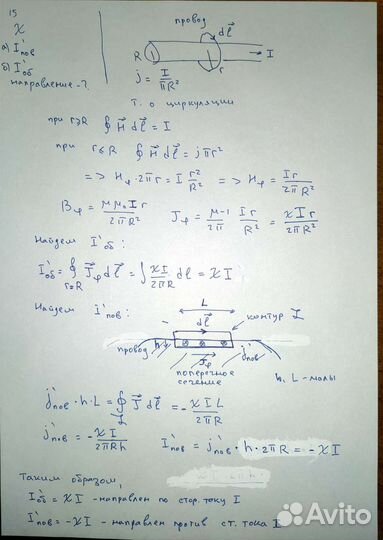 15
χ
а) I'пов
б) I'об
направление - ?
провод
dl⃗
R
r
I
j = I/πR²
Т. о циркуляции
при r≥R ∮ H⃗ dl⃗ = I
при r≤R ∮ H⃗ dl⃗ = jπr²
=> Hφ·2πr = I r²/R² => Hφ = I/2π r/R²
Bφ = μμ₀/2π I r/R² Jφ = μ-1/2π I r/R² = χ I r/2πR²
Найдем I'об :
I'об = ∮ J⃗φ dl⃗ = ∫ χI/2πR dl = χI
r≥R
Найдем I'пов :
L
dl⃗
контур L
h
провод
Jφ
j'пов
поперечное
сечение
h, L - малы
j'пов · h · L = ∮ J⃗ dl⃗ = - χIL/2πR
L
j'пов = - χI/2πRh I'пов = j'пов · h · 2πR = - χI
Таким образом,
I'об = χI - направлен по стор. току I
I'пов = -χI - направлен против ст. тока I
Avito